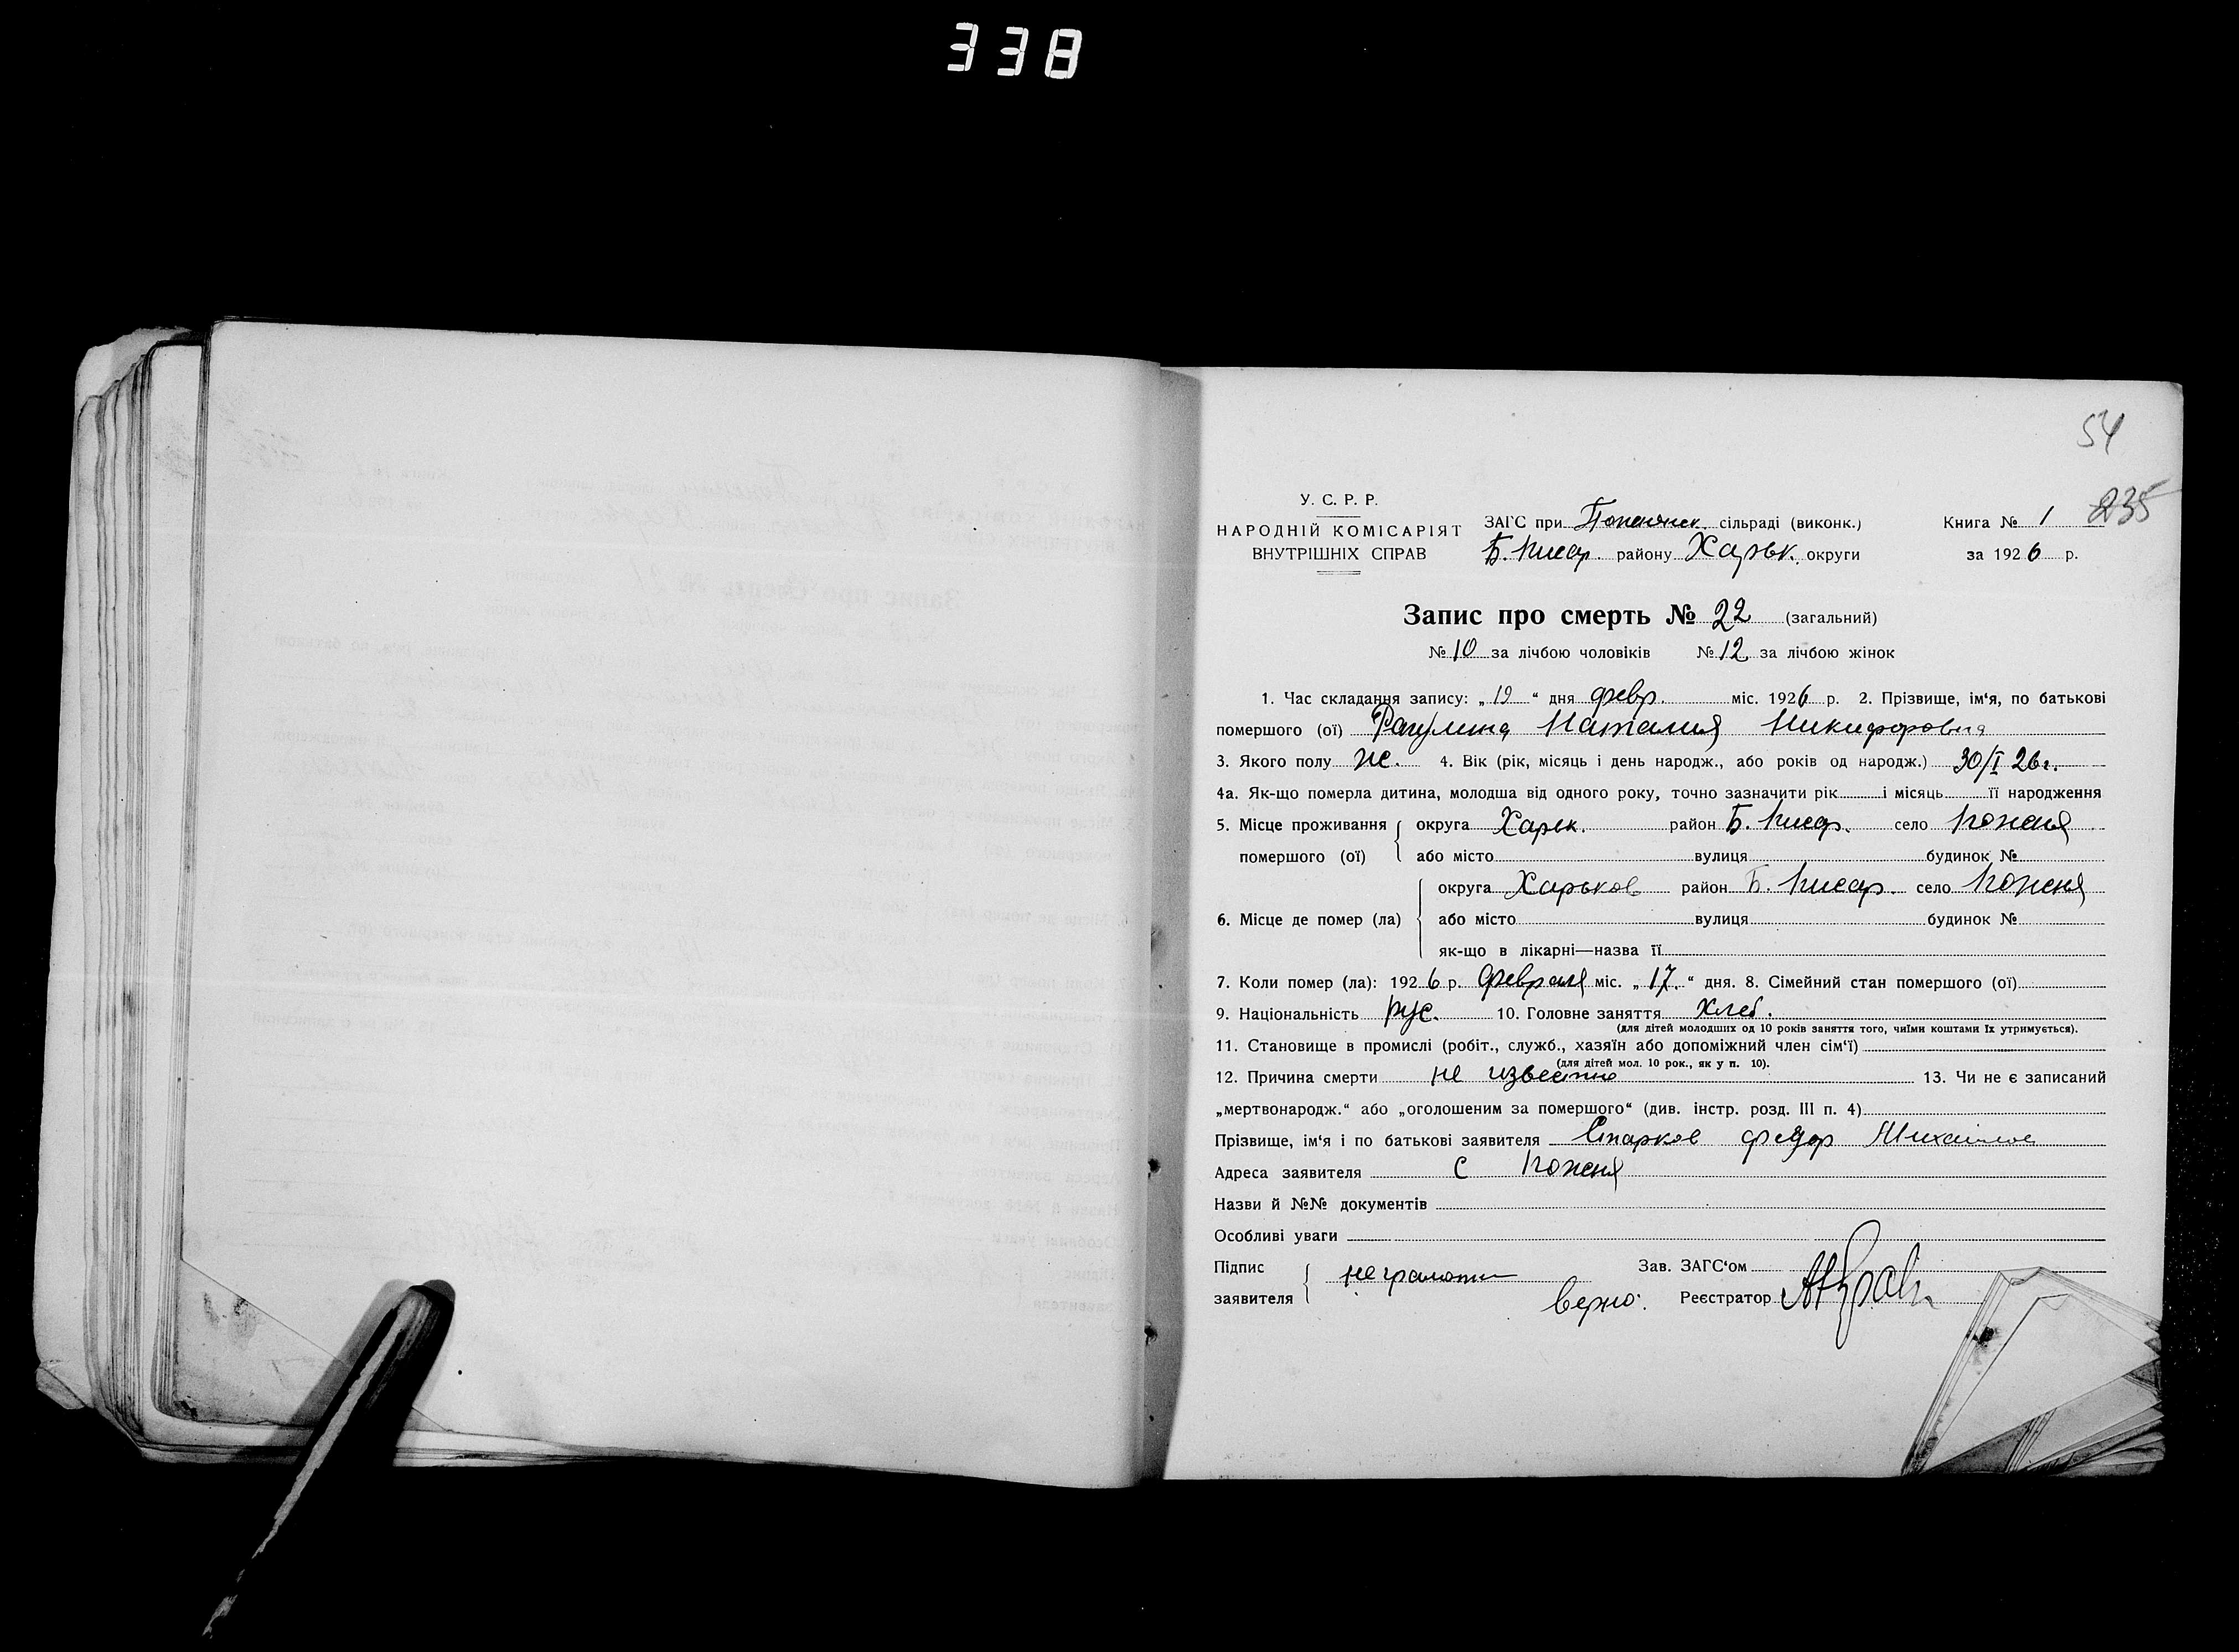 338
54
У. С. Р. Р.
НАРОДНІЙ КОМІСАРІЯТ
ВНУТРІШНІХ СПРАВ
ЗАГС при сільраді (виконк.)
Б. Писар. району Харьк. округи
Книга № 1 235
за 1926 р.
Запис про смерть № 22 (загальний)
№ 10 за лічбою чоловіків № 12 за лічбою жінок
1. Час складання запису: „19“ дня февр. міс. 1926 р. 2. Прізвище, ім‘я, по батькові
помершого (ої) Рагулина Наталия Никифоровна
3. Якого полу ж. 4. Вік (рік, місяць і день народж., або років од народж.) 30/I 26 г.
4а. Як-що померла дитина, молодша від одного року, точно зазначити рік і місяць її народження
5. Місце проживання помершого (ої) округа Харьк. район Б. Писар. село
або місто вулиця будинок №
6. Місце де помер (ла) округа Харьков район Б. Писар. село
або місто вулиця будинок №
як-що в лікарні—назва її
7. Коли помер (ла): 1926 р. февраля міс. „17.“ дня. 8. Сімейний стан помершого (ої)
9. Національність рус. 10. Головне заняття хлеб.
(для дітей молодших од 10 років заняття того, чиїми коштами їх утримується).
11. Становище в промислі (робіт., служб., хазяїн або допоміжний член сім‘ї)
(для дітей мол. 10 рок., як у п. 10).
12. Причина смерти не известно 13. Чи не є записаний
„мертвонародж.“ або „оголошеним за помершого“ (див. інстр. розд. III п. 4)
Прізвище, ім‘я і по батькові заявителя Старков федор Михайлов
Адреса заявителя с
Назви й №№ документів
Особливі уваги
Підпис заявителя неграмотн
Зав. ЗАГС‘ом
верно: Реєстратор